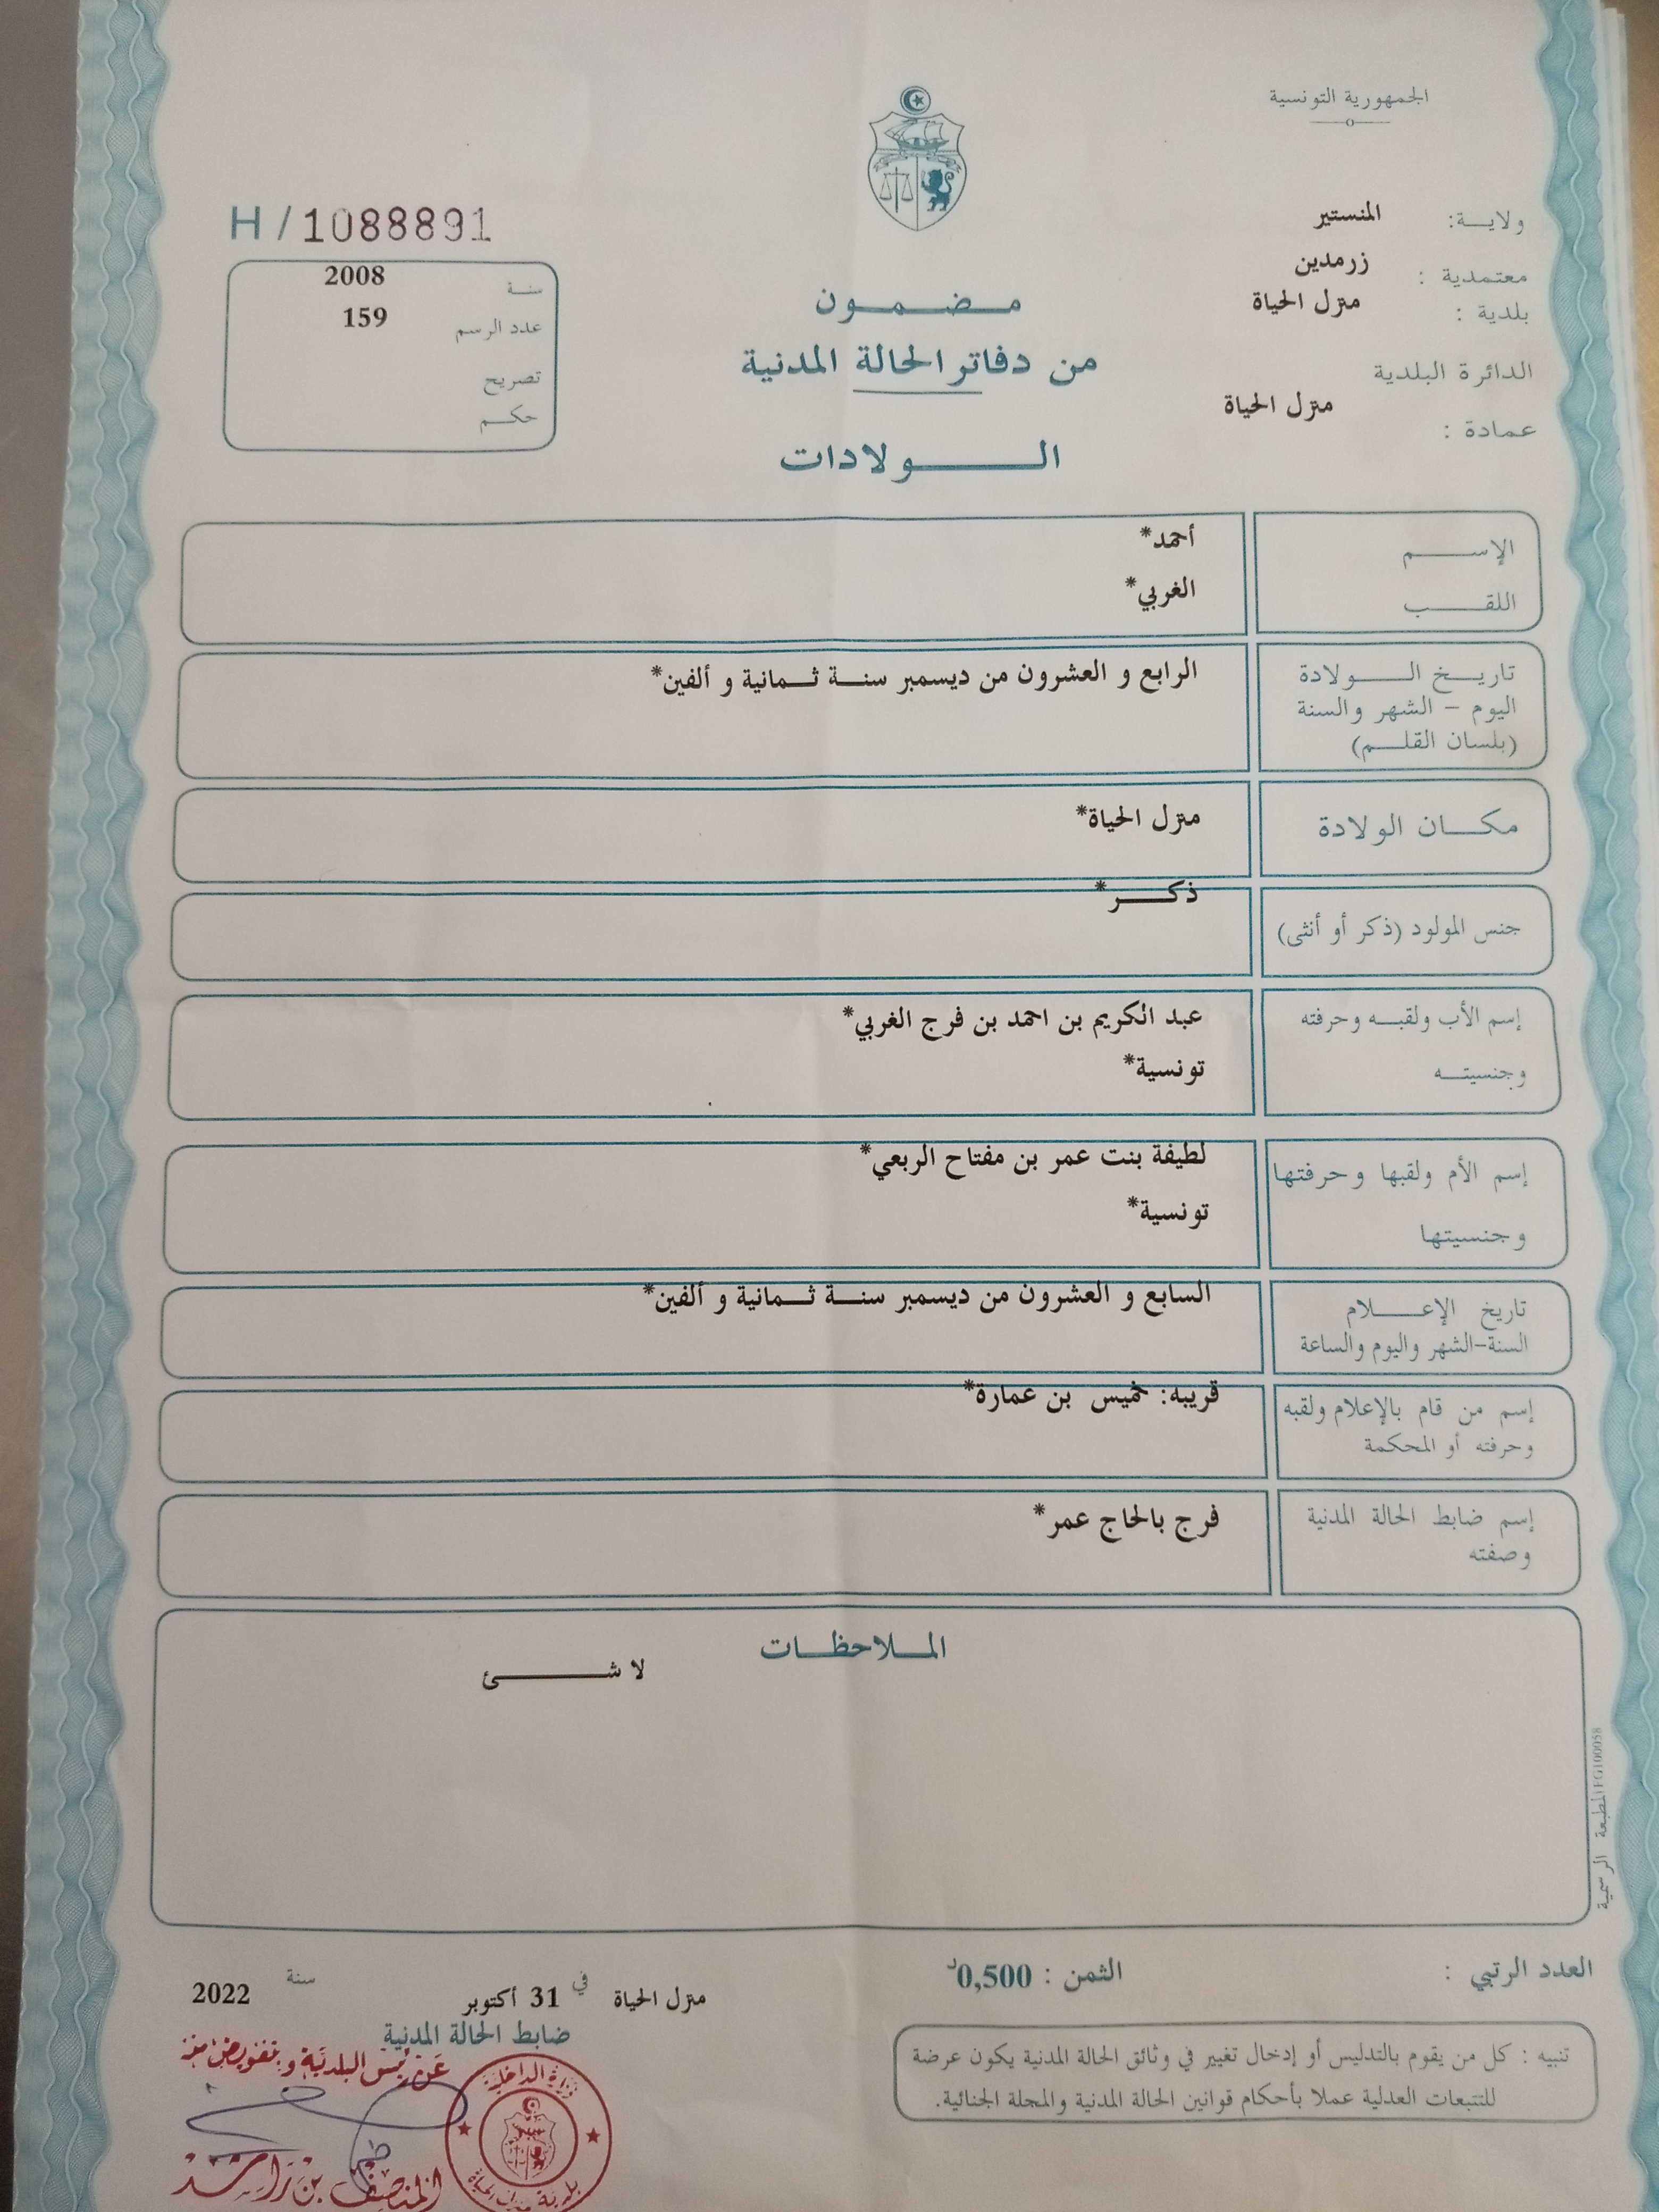 الجمهورية التونسية
ولايـــة: المنستير
معتمدية : زرمدين
بلدية : منزل الحياة
الدائرة البلدية
عمادة : منزل الحياة
H / 1088891
سنــة 2008
عدد الرسم 159
تصريح
حكــم
مـضـمـون
من دفاتر الحالة المدنية
الـولادات
الإســـم أحمد*
اللقـــب الغربي*
تاريــخ الــولادة الرابع و العشرون من ديسمبر سنــة ثــمانية و ألفين*
اليوم - الشهر والسنة
(بلسان القلــم)
مكــان الولادة منزل الحياة*
جنس المولود (ذكر أو أنثى) ذكــر*
إسم الأب ولقبــه وحرفته عبد الكريم بن احمد بن فرج الغربي*
وجنسيتــه تونسية*
إسم الأم ولقبها وحرفتها لطيفة بنت عمر بن مفتاح الربعي*
وجنسيتها تونسية*
تاريخ الإعـــلام السابع و العشرون من ديسمبر سنــة ثــمانية و ألفين*
السنة-الشهر واليوم والساعة
إسم من قام بالإعلام ولقبه قريبه: خميس بن عمارة*
وحرفته أو المحكمة
إسم ضابط الحالة المدنية فرج بالحاج عمر*
وصفته
المــلاحظــات
لا شـــئ
المطبعة الرسمية
العدد الرتبي :
الثمن : 0,500د
منزل الحياة في 31 أكتوبر سنة 2022
ضابط الحالة المدنية
عن رئيس البلدية و بتفويض منه
المنصف بن راشد
وزارة الداخلية
بلدية منزل الحياة
تنبيه : كل من يقوم بالتدليس أو إدخال تغيير في وثائق الحالة المدنية يكون عرضة
للتتبعات العدلية عملا بأحكام قوانين الحالة المدنية والمجلة الجنائية.